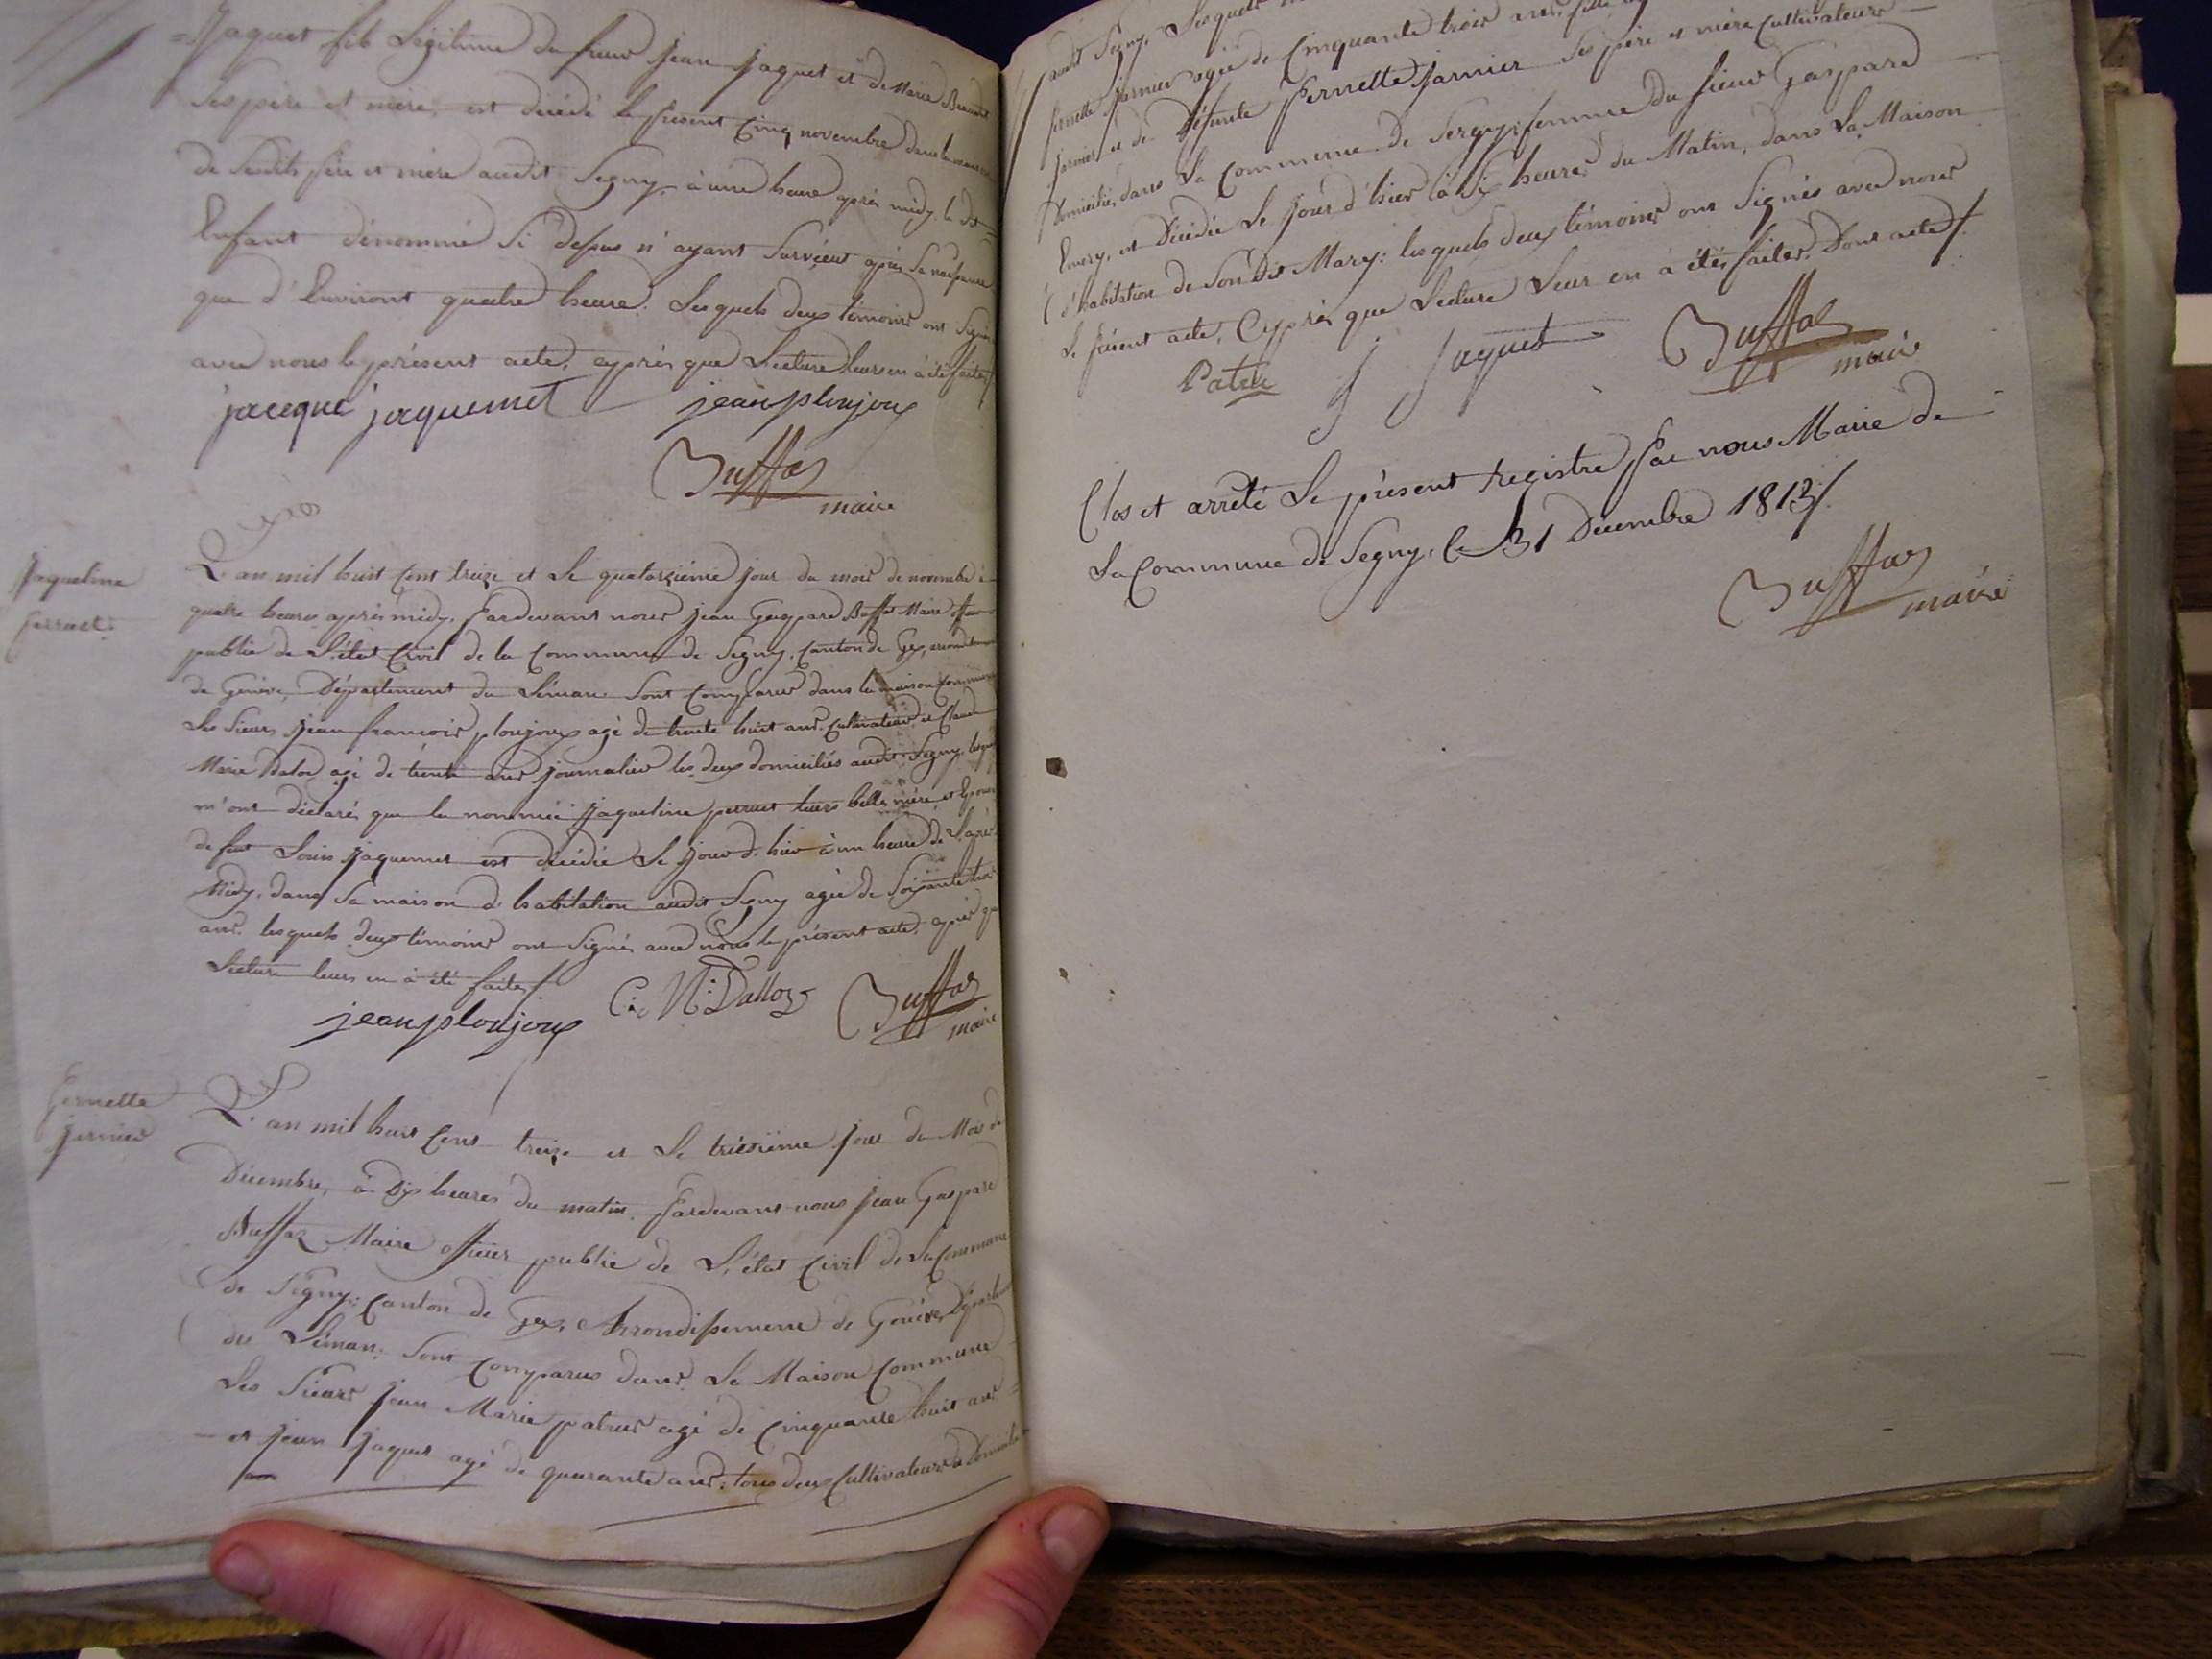 Jaquet fils Légitime de sieur Jean Jaquet et de Marie
Ses père et mère, est décédé le présent Cinq novembre dans la maison
de Sesdits père et mère audit Segny, à une heure après midy, le dit
Enfant dénommé Si dessus n'ayant Survécut après Sa naissance
que d'Environt quatre heure. Lesquels deux témoins ont Signés
avec nous le présent acte, après que Lecture leurs en à été faite /.
jacque jaquemet jean ploujoux
Buffaz
maire
Jaqueline
perruet.
L'an mil huit Cent treize et Le quatorzième jour du mois de novembre à
quatre heures après midy. Pardevant nous Jean Gaspard Buffaz Maire officier
public de L'état Civil de la Commune de Segny, Canton de Gex, arrondissement
de Genève, Département du Léman. Sont Comparus dans la maison Commune
Les Sieurs Jean françois ploujoux agé de trente huit ans Cultivateur et Claude
Marie Daloz agé de trente ans journalier les deux domiciliés audit Segny, lesquels
m'ont déclarés que la nommée Jaqueline perruet leurs belle mère et Epouse
de feut Louis Jaquemet est décédée Le jour d'hier à un heure de L'après
Midy, dans Sa maison d'habitation audit Segny agée de Soixante trois
ans. lesquels deux témoins ont Signés avec nous le présent acte, après que
Lecture leurs en à été faite /.
jean ploujoux C. M. Dalloz Buffaz
maire
Pernette
Jarnier
L'an mil huit Cent treize et Le trésième jour du Mois de
Décembre, à Dix heures du matin. Pardevant nous Jean Gaspard
Buffaz Maire officier public de L'état Civil de La Commune
de Segny, Canton de Gex, Arrondissement de Genève, Département
du Léman. Sont Comparus dans La Maison Commune
Les Sieurs Jean Marie patrus agé de Cinquante huit ans
et Jean Jaquet agé de quarante ans, tous deux Cultivateurs Domiciliés
audit Segny, Lesquels
pernette Jarnier agée de Cinquante trois ans, fille
Jarnier et de Défunte Pernette Jarnier Ses père et mère Cultivateurs
Domiciliés dans La Commune de Sergy, femme du Sieur Gaspard
Emery, est Décédée Le jour d'hier à Six heures du Matin, dans La Maison
d'habitation de Son Dit Mary: lesquels deux témoins ont Signés avec nous
Le présent acte, Après que Lecture Leur en à étés faites. Dont acte /.
Patru J Jaquet Buffaz
maire
Clos et arrêté Le présent Registre par nous Maire de
La Commune de Segny, Ce 31 Décembre 1813 /.
Buffaz
maire